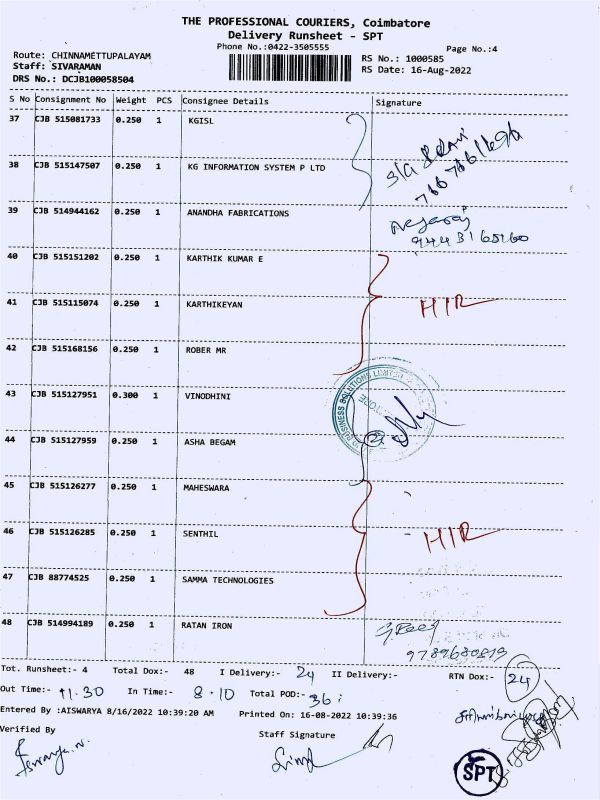 THE PROFESSIONAL COURIERS, Coimbatore
Delivery Runsheet - SPT
Phone No.:0422-3505555
Page No.:4
Route: CHINNAMETTUPALAYAM
Staff: SIVARAMAN
DRS No.: DCJB100058504
RS No.: 1000585
RS Date: 16-Aug-2022
S No Consignment No Weight PCS Consignee Details Signature
37 CJB 515081733 0.250 1 KGISL
38 CJB 515147507 0.250 1 KG INFORMATION SYSTEM P LTD
39 CJB 514944162 0.250 1 ANANDHA FABRICATIONS
94431 65160
40 CJB 515151202 0.250 1 KARTHIK KUMAR E
41 CJB 515115074 0.250 1 KARTHIKEYAN
HIR
42 CJB 515168156 0.250 1 ROBER MR
43 CJB 515127951 0.300 1 VINODHINI
BUSINESS SOLUTIONS LIMITED
44 CJB 515127959 0.250 1 ASHA BEGAM
45 CJB 515126277 0.250 1 MAHESWARA
46 CJB 515126285 0.250 1 SENTHIL
HIR
47 CJB 88774525 0.250 1 SAMMA TECHNOLOGIES
48 CJB 514994189 0.250 1 RATAN IRON
9789680819
Tot. Runsheet:- 4 Total Dox:- 48 I Delivery:- 24 II Delivery:- RTN Dox:- 24
Out Time:- 11.30 In Time:- 8.10 Total POD:- 36
Entered By :AISWARYA 8/16/2022 10:39:20 AM Printed On: 16-08-2022 10:39:36
Verified By
Staff Signature
SPT